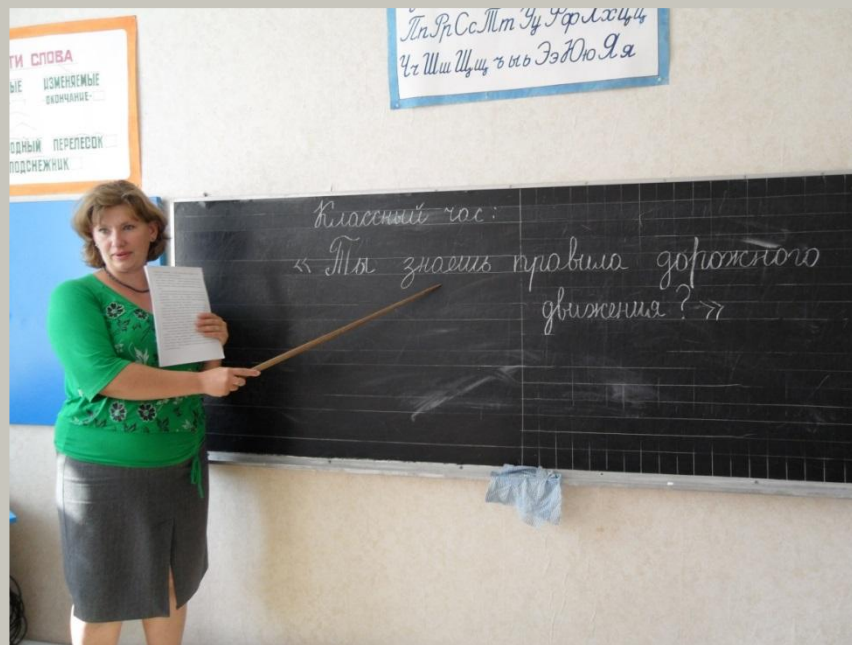 ТИ СЛОВА
ЫЕ ИЗМЕНЯЕМЫЕ
ОКОНЧАНИЕ-
ОДНЫЙ ПЕРЕЛЕСОК
ПОДСНЕЖНИК
Пп Рр Сс Тт Уу Фф Хх Цц
Чч Шш Щщ ъ ы ь Ээ Юю Яя
Классный час:
«Ты знаешь правила дорожного
движения?»